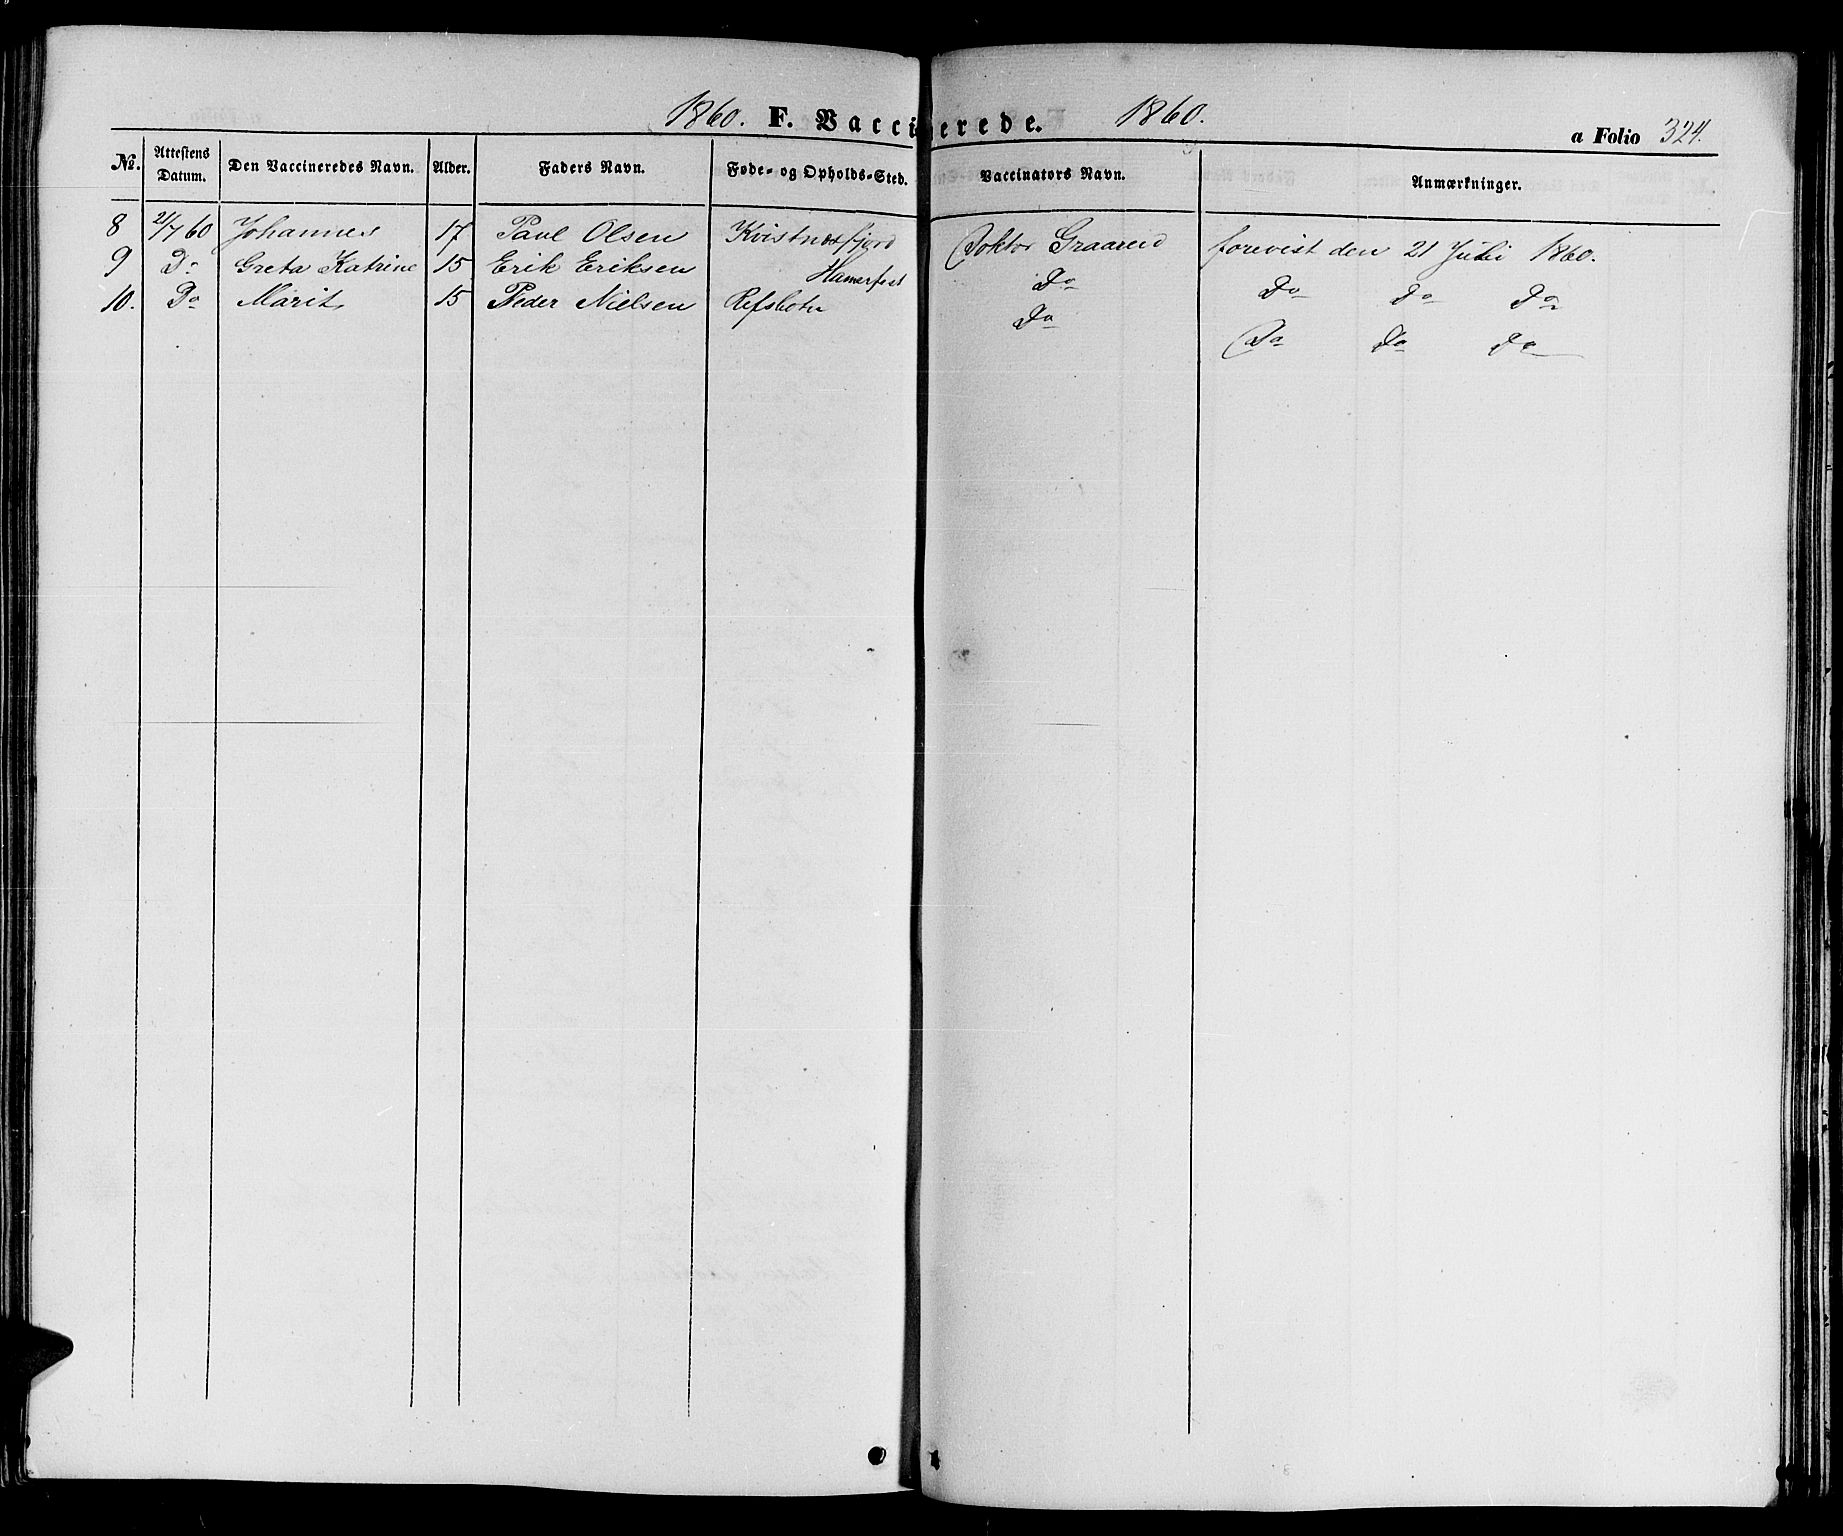 1860. F. Vaccinerede. 1860.
a Folio 324.
No. Attestens Datum. Den Vaccineredes Navn. Alder. Faders Navn. Føde- og Opholds-Sted. Vaccinators Navn. Anmærkninger.
8 2/7 60 Johannes 17 Paul Olsen Kvistnæsfjord Doktor Graarud forevist den 21 Juli 1860.
9 Do Greta Katrine 15 Erik Eriksen Hamerfest Do Do Do Do
10. Do Marit 15 Peder Nielsen Refsbotn Do Do Do Do